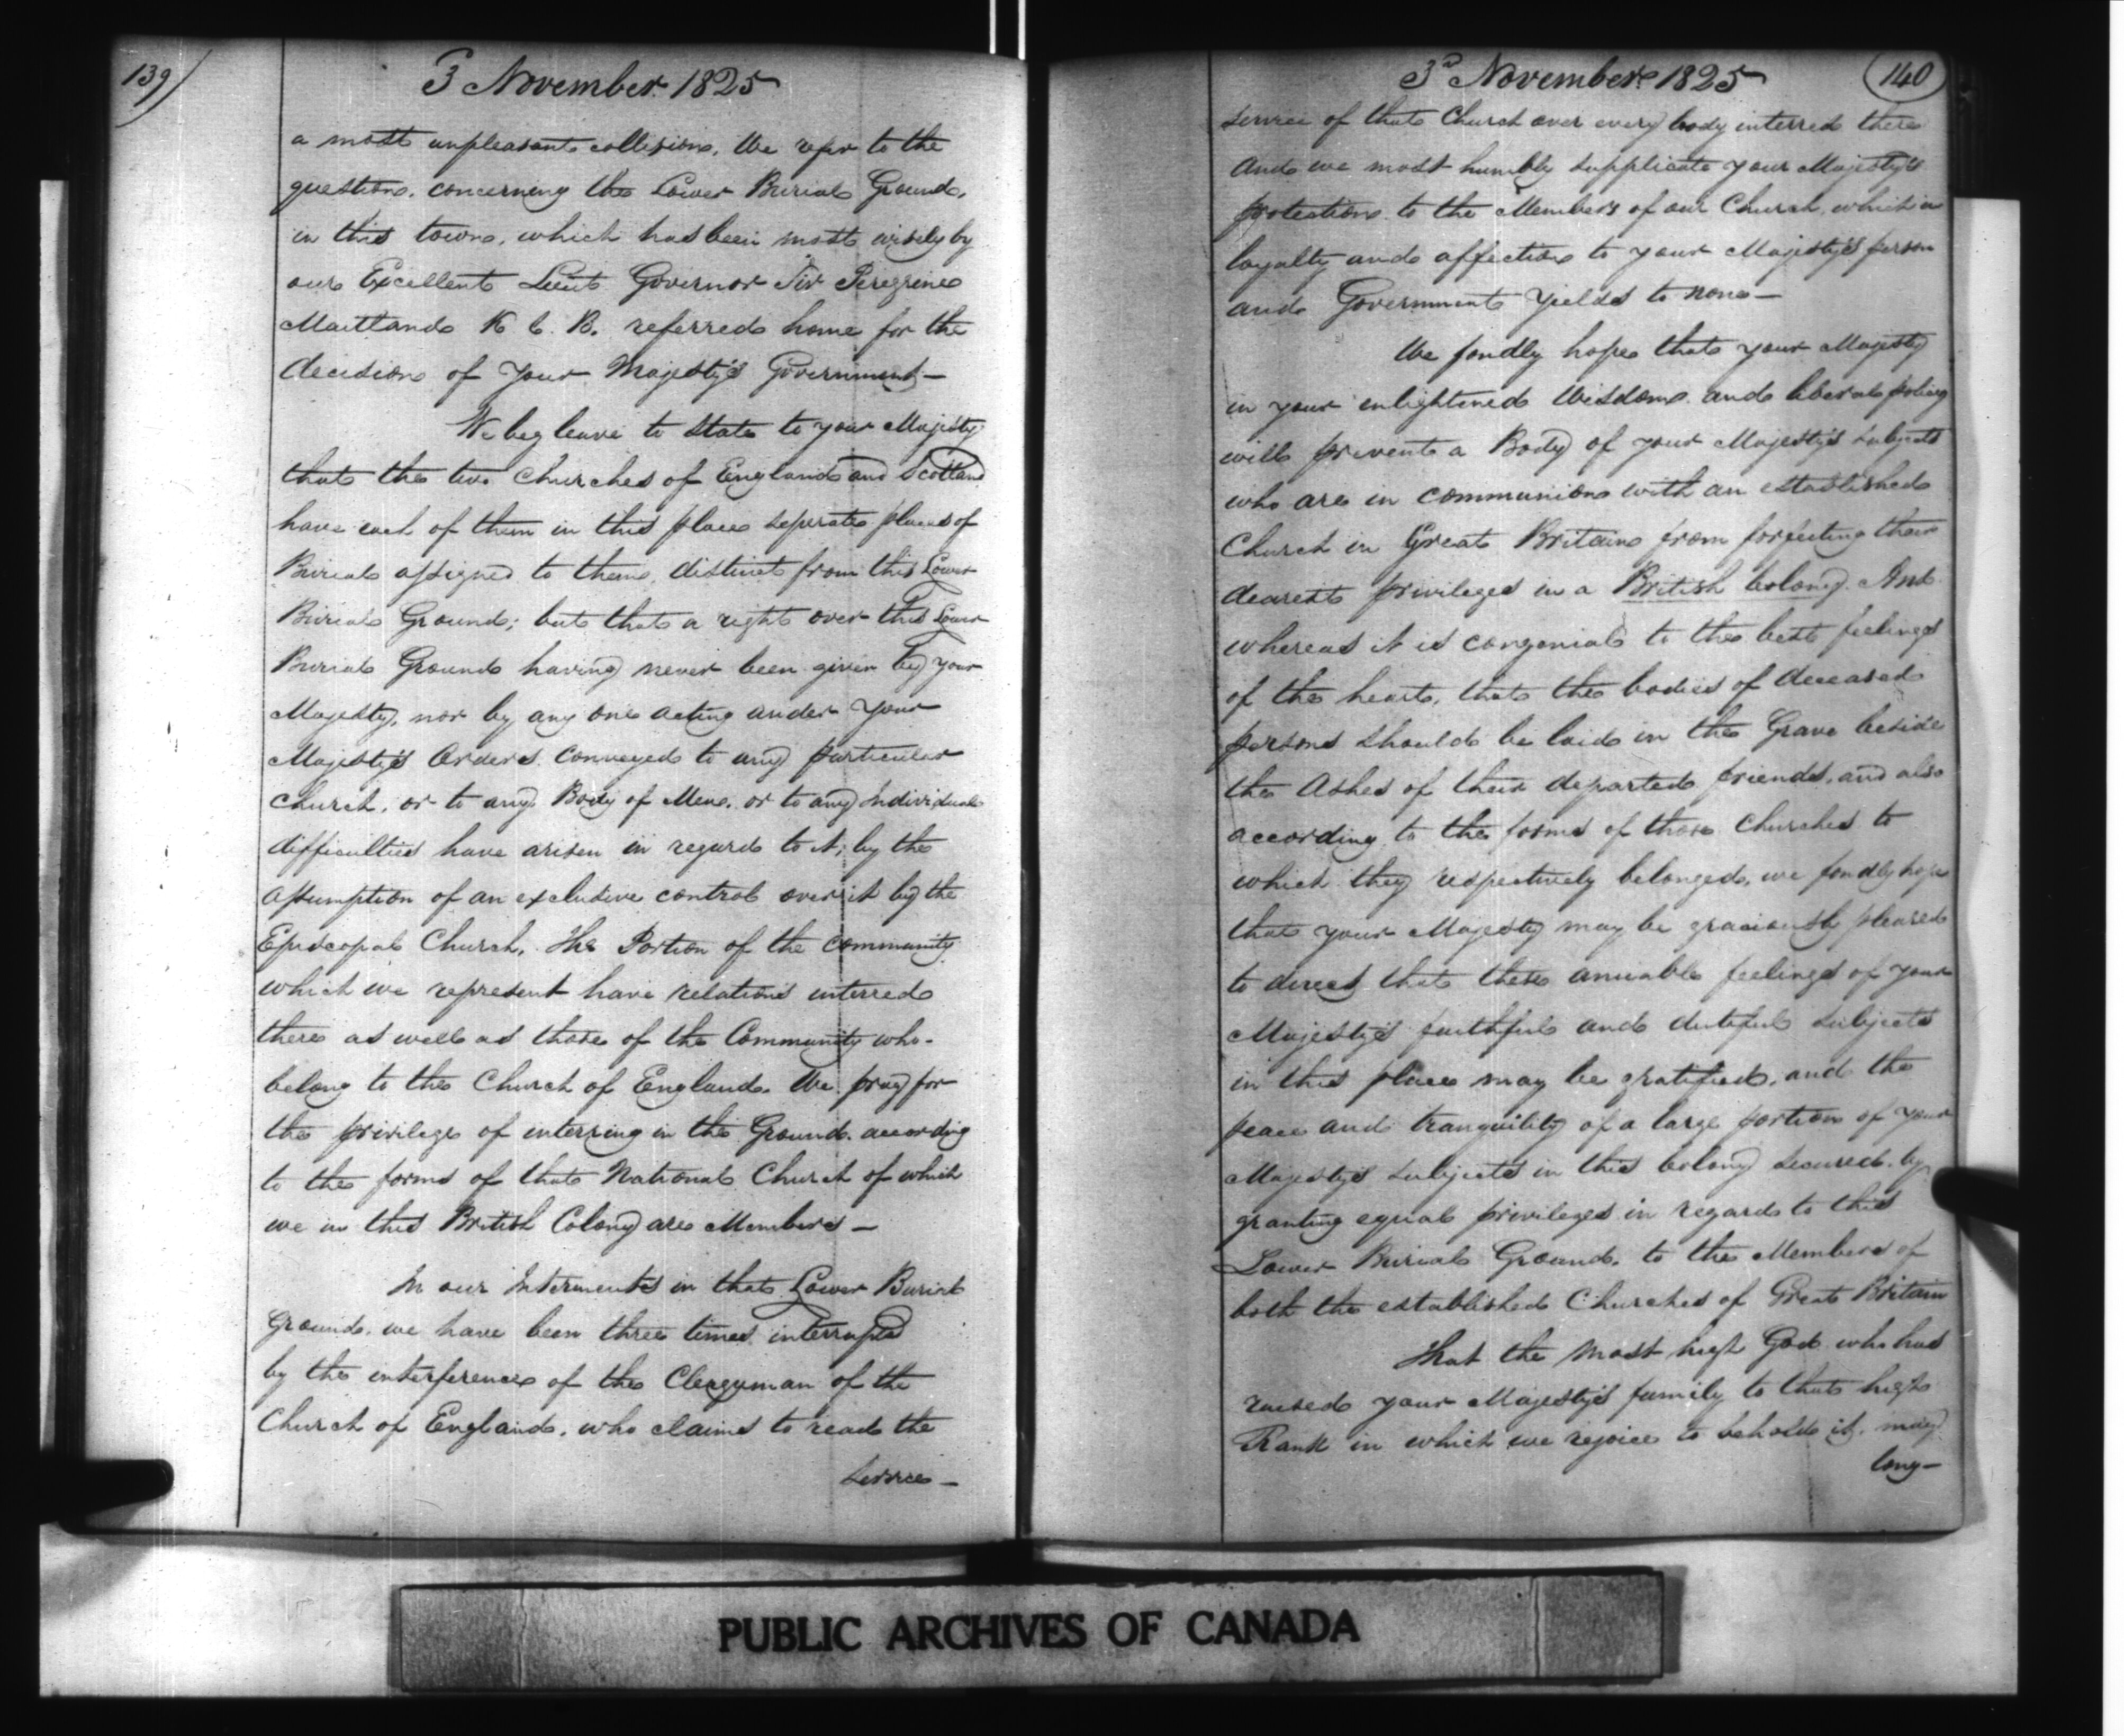 139)
3 November 1825
a most unpleasant collision. We refer to the
question, concerning the Lower Burial Ground,
in this town, which has been most wisely by
our Excellent Lieut Governor Sir Peregrine
Maitland K C. B. referred home for the
decision of Your Majesty's Government—
We beg leave to state to your Majesty
that the two Churches of England and Scotland
have each of them in this place seperate places of
Burial assigned to them, distinct from this Lower
Burial Ground; but that a right over this Lower
Burial Ground having never been given by your
Majesty, nor by any one acting under Your
Majesty's Orders conveyed to any particular
Church, or to any Body of Men, or to any Individual
difficulties have arisen in regard to it; by the
assumption of an exclusive control over it by the
Episcopal Church. The Portion of the Community
which we represent have relations interred
there as well as those of the Community who-
belong to the Church of England. We pray for
the privilege of interring in the Ground according
to the forms of that National Church of which
we in this British Colony are Members—
In our Interments in that Lower Burial
Ground, we have been three times interrupted
by the interference of the Clergyman of the
Church of England, who claims to read the
service—
3rd November 1825
140
service of that Church over every body interred there
And we most humbly supplicate your Majesty's
protection to the Members of our Church, which in
loyalty and affection to your Majesty's person
and Government Yields to none—
We fondly hope that your Majesty
in your enlightened Wisdom and liberal policy
will prevent a Body of your Majesty's subjects
who are in communion with an established
Church in Great Britain from forfeiting their
dearest privileges in a British Colony. And
whereas it is congenial to the best feelings
of the heart, that the bodies of deceased
persons should be laid in the Grave beside
the Ashes of their departed friends, and also
according to the forms of those Churches to
which they respectively belonged, we fondly hope
that your Majesty may be graciously pleased
to direct that these amiable feelings of your
Majesty's faithful and dutiful subjects
in this place may be gratified, and the
peace and tranquility of a large portion of your
Majesty's subjects in this Colony secured by
granting equal privileges in regard to this
Lower Burial Ground, to the Members of
both the established Churches of Great Britain
That the most high God who has
raised your Majesty's family to that high
Rank in which we rejoice to behold it, may
long—
PUBLIC ARCHIVES OF CANADA